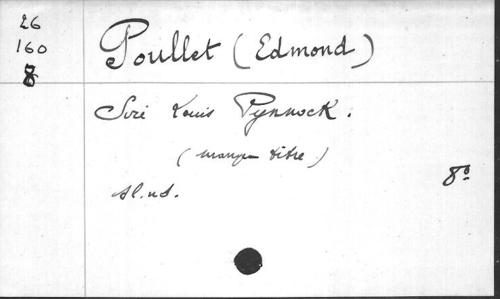 26
160
8
Poullet (Edmond)
Siré Louis Pynnock.
(manque titre)
sl.nd.
8°